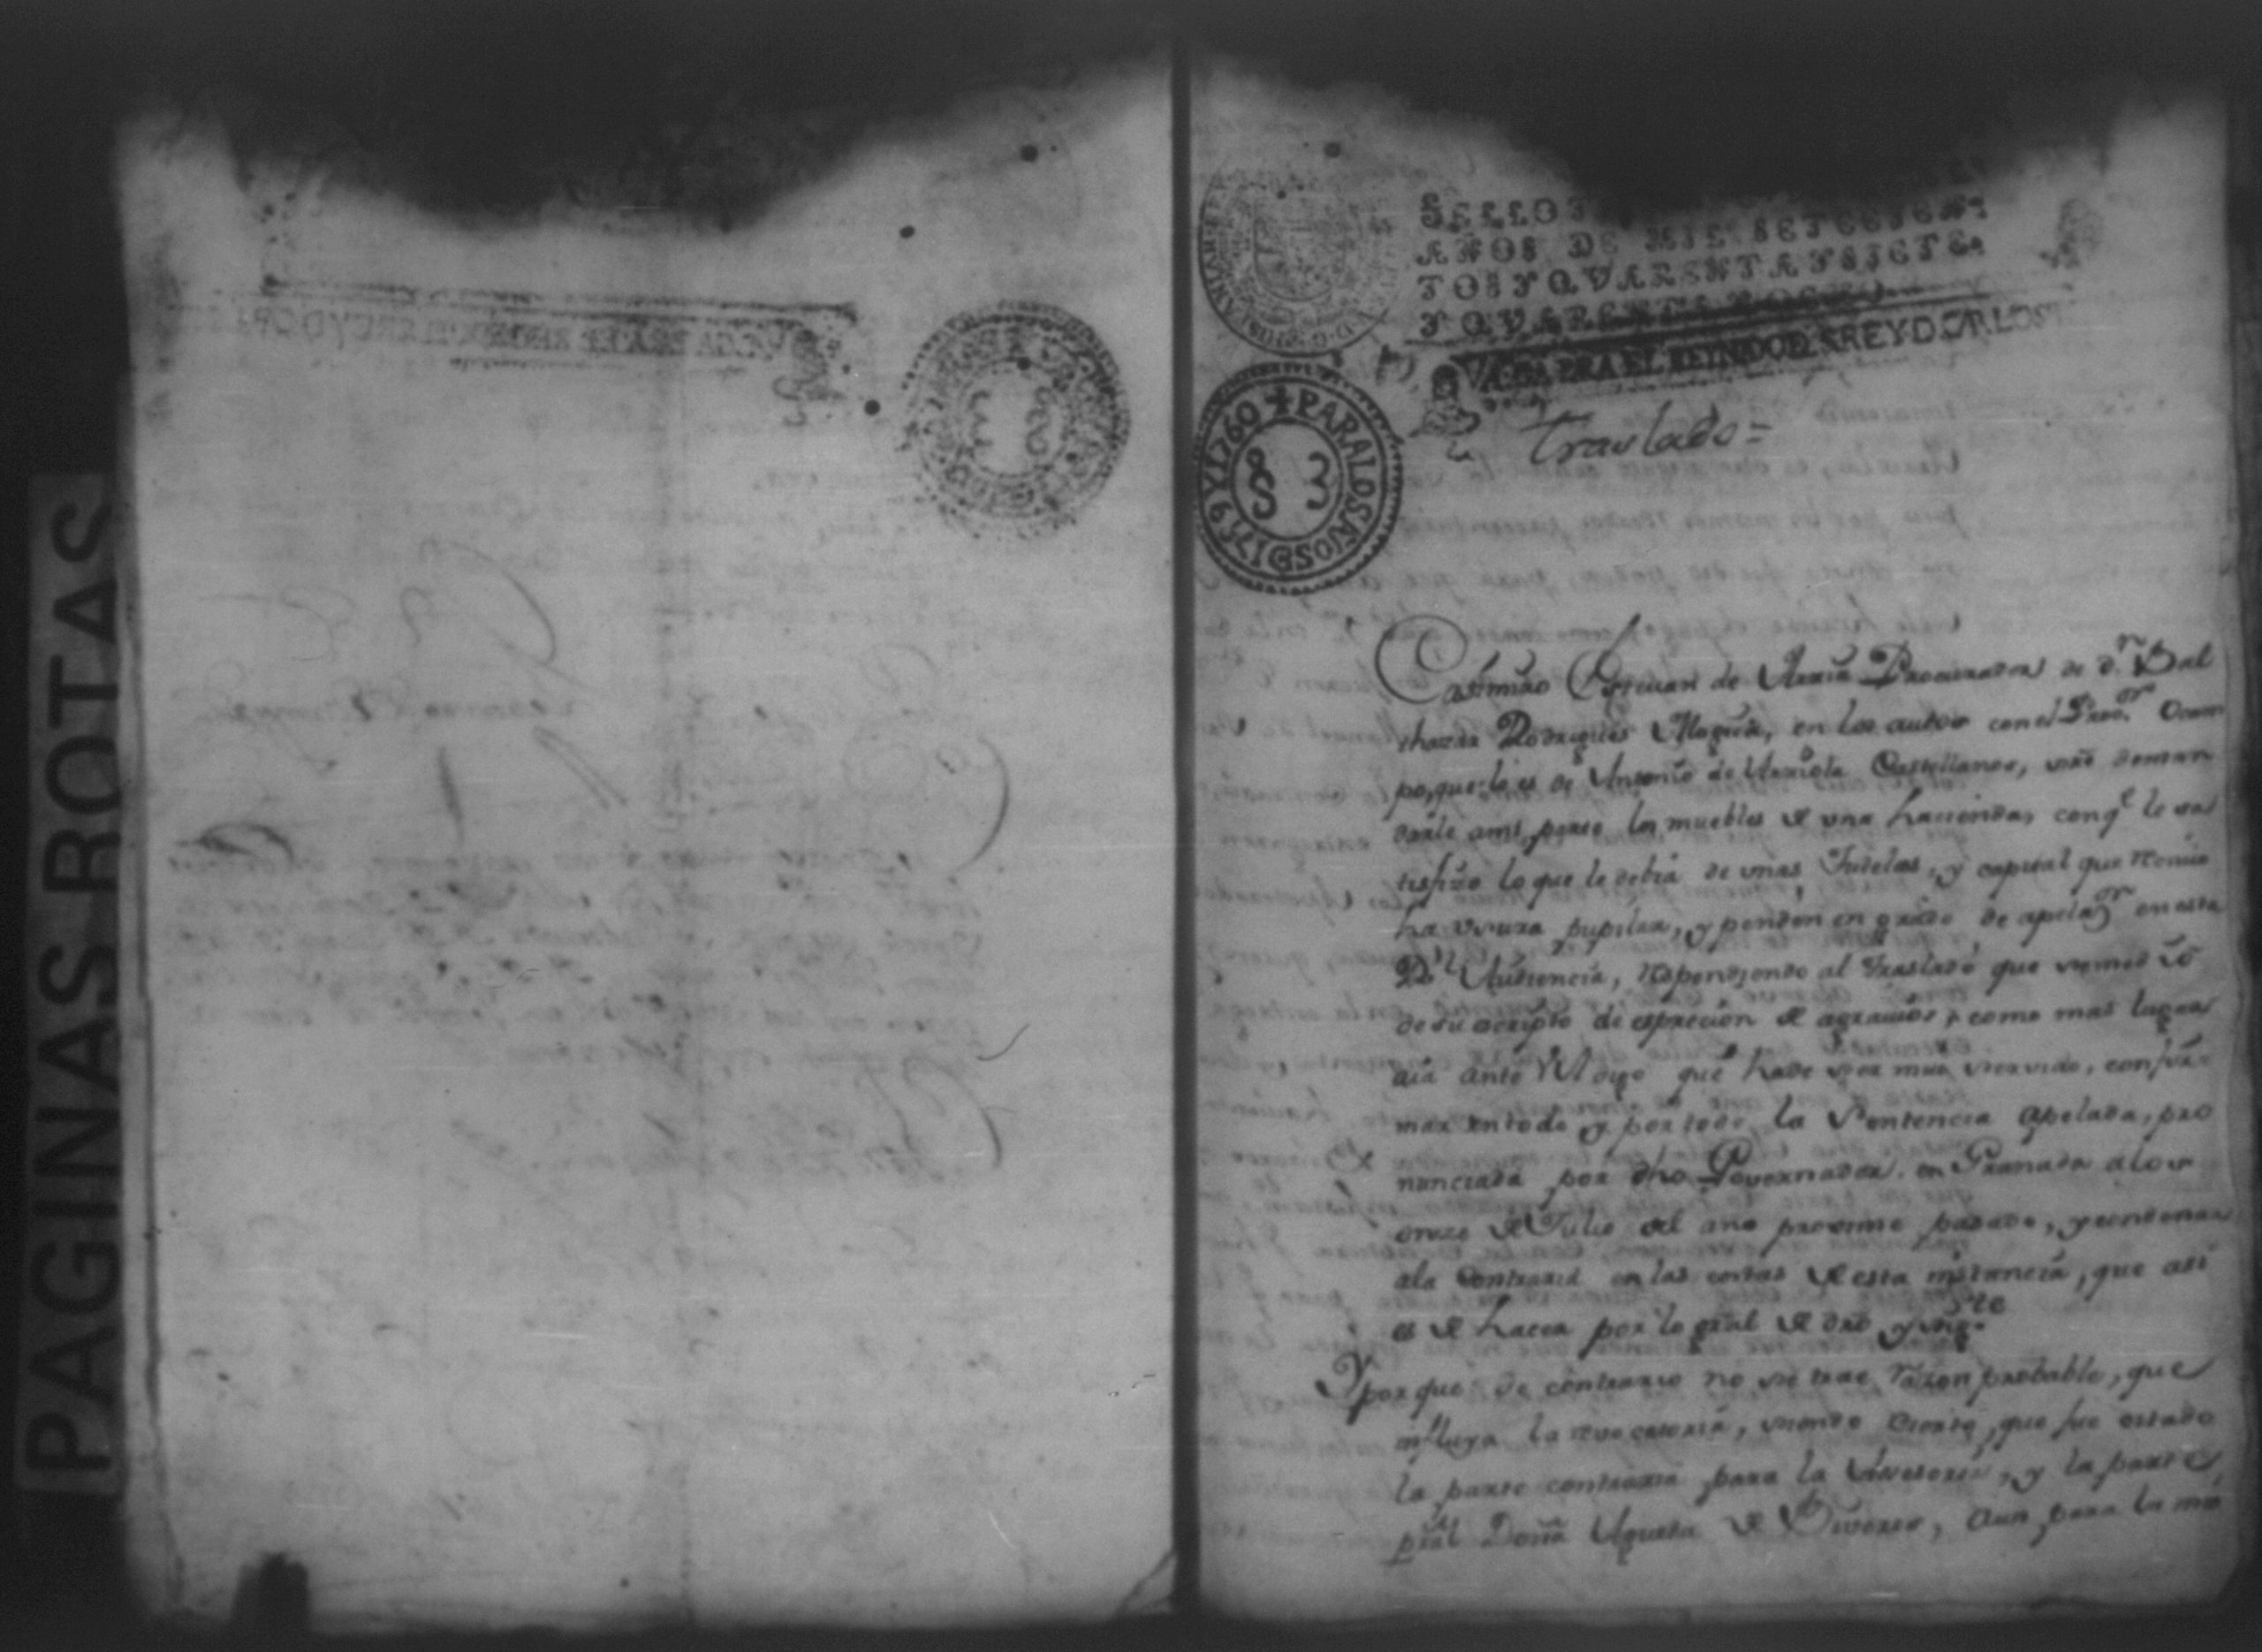 PAGINAS ROTAS
SELLO
AÑOS DE MIL SETECIEN
TOS Y QVARENTA Y SIETE
Y QVARENTA Y OCHO.
VALGA PRA EL REYNADO DEL S REY D. CARLOS
1759 Y 1760 + PARA LOS AÑOS D
3
Traslado=
Casimiro Estevan de Arria Procurador de d.n Bal
thazar Rodrigues Alegria, en los autos con el Proo.or Ocam
po, que lo es de Antonio de Arriola Castellanos, sre deman
darle ami parte los muebles de una hacienda, con q.e le sa
tisfizo lo que le debia de unas Tutelas, y capital que
ha usura pupilar, y penden en grado de apelaz.on en esta
R.l Audiencia, respondiendo al traslado que se me dió
de su escripto de espreción de agravios, como mas lugar
aia ante V A digo que hade ser mui servido, confir-
mar entodo y por todo la Sentencia apelada, pro
nunciada por dho Governador en Granada alos
onze de Julio del año proximo pasado, y condenar
ala contraria en las costas de esta instancia, que asi
es de hacer por lo gral de dro y sig.te
Y por que de contrario no se trae razon probable, que
influya la revocatoria, siendo cierto, que fue citado
la parte contraria para la, y la parte
pral Doña Agueda de, aun para la